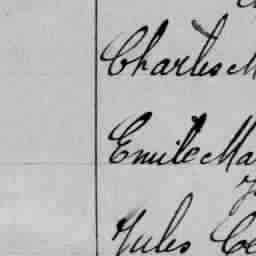 Charles M
Emile Ma
Jules Ce